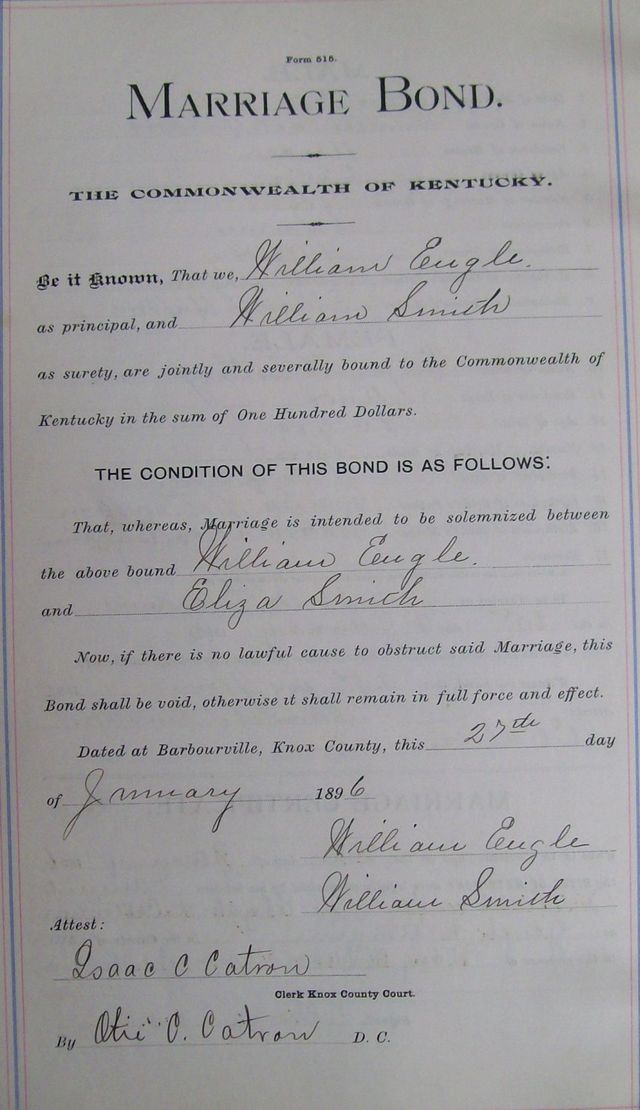 Form 515.
MARRIAGE BOND.
THE COMMONWEALTH OF KENTUCKY.
Be it Known, That we, William Eugle.
as principal, and William Smith
as surety, are jointly and severally bound to the Commonwealth of
Kentucky in the sum of One Hundred Dollars.
THE CONDITION OF THIS BOND IS AS FOLLOWS:
That, whereas, Marriage is intended to be solemnized between
the above bound William Eugle.
and Eliza Smith
Now, if there is no lawful cause to obstruct said Marriage, this
Bond shall be void, otherwise it shall remain in full force and effect.
Dated at Barbourville, Knox County, this 27th day
of January 1896
William Eugle
William Smith
Attest:
Isaac C Catron
Clerk Knox County Court.
By Otis C. Catron D. C.